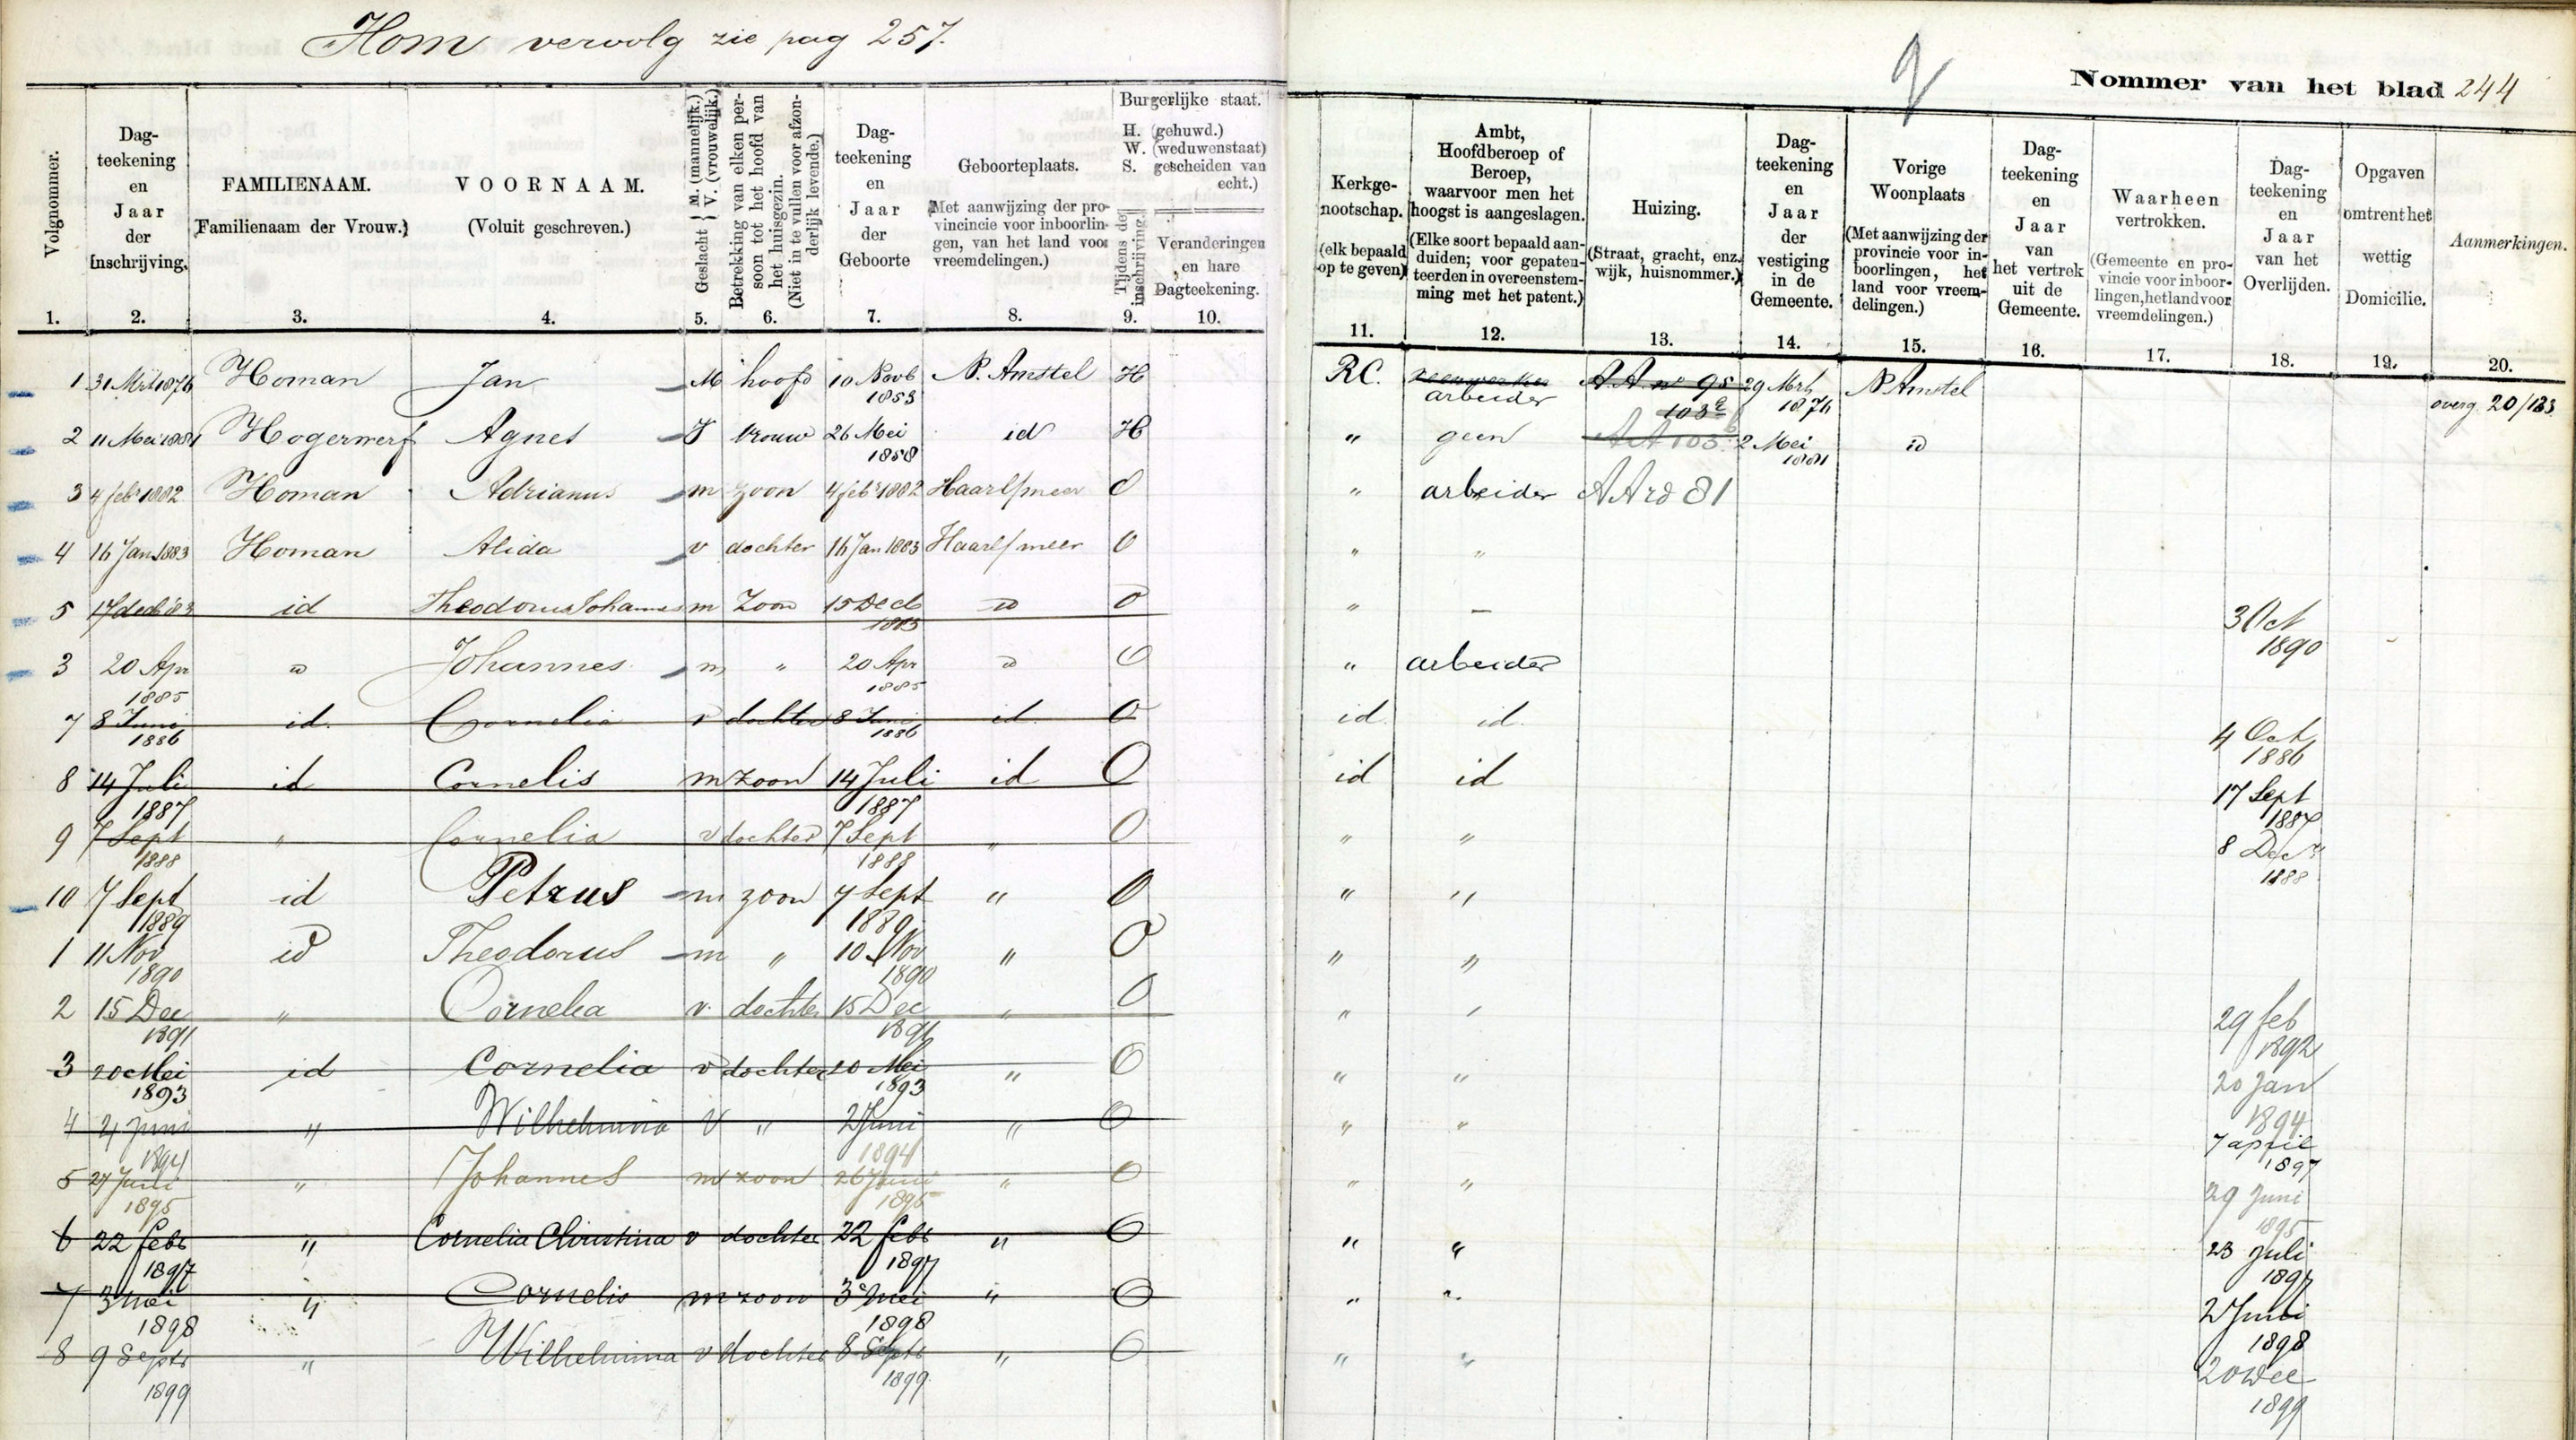 Hom vervolg zie pag 257.
Nommer van het blad 244
Volgnommer.
Dag-
teekening
en
Jaar
der
Inschrijving.
FAMILIENAAM.
(Familienaam der Vrouw.)
VOORNAAM.
(Voluit geschreven.)
Geslacht } M. (mannelijk.) V. (vrouwelijk.)
Betrekking van elken per-
soon tot het hoofd van
het huisgezin.
(Niet in te vullen voor afzon-
derlijk levende.)
Dag-
teekening
en
Jaar
der
Geboorte
Geboorteplaats.
(Met aanwijzing der pro-
vincincie voor inboorlin-
gen, van het land voor
vreemdelingen.)
Burgerlijke staat.
H. (gehuwd.)
W. (weduwenstaat)
S. gescheiden van
echt.)
Tijdens de
inschrijving.
Veranderingen
en hare
Dagteekening.
Kerkge-
nootschap.
(elk bepaald
op te geven)
Ambt,
Hoofdberoep of
Beroep,
waarvoor men het
hoogst is aangeslagen.
(Elke soort bepaald aan-
duiden; voor gepaten-
teerden in overeenstem-
ming met het patent.)
Huizing.
(Straat, gracht, enz.
wijk, huisnommer.)
Dag-
teekening
en
Jaar
der
vestiging
in de
Gemeente.
Vorige
Woonplaats
(Met aanwijzing der
provincie voor in-
boorlingen, het
land voor vreem-
delingen.)
Dag-
teekening
en
Jaar
van
het vertrek
uit de
Gemeente.
Waarheen
vertrokken.
(Gemeente en pro-
vincie voor inboor-
lingen, het land voor
vreemdelingen.)
Dag-
teekening
en
Jaar
van het
Overlijden.
Opgaven
omtrent het
wettig
Domicilie.
Aanmerkingen.
1. 2. 3. 4. 5. 6. 7. 8. 9. 10. 11. 12. 13. 14. 15. 16. 17. 18. 19. 20.
1 31 Mrt 1876 Homan Jan M hoofd 10 Novb 1853 N. Amstel H RC. arbeider AA no 95 103a 29 Mrt 1876 N Amstel overg. 20/133
2 11 Mei 1881 Hogerwerf Agnes V vrouw 26 Mei 1858 id H " geen AA 103 2 Mei 1881 id
3 4 febr 1882 Homan Adrianus m zoon 4 febr 1882 Haarl/meer O " arbeider AArd 81
4 16 Jan 1883 Homan Alida v dochter 16 Jan 1883 Haarl/meer O " "
5 17 decb 83 id Theodorus Johannes m Zoon 15 Decb 1883 id O " — 3 Oct 1890
3 20 Apr 1885 id Johannes m " 20 Apr 1885 id O " arbeider
7 8 Juni 1886 id. Cornelia v dochter 8 Juni 1886 id. O id. id. 4 Oct 1886
8 14 Juli 1887 id Cornelis m zoon 14 Juli 1887 id O id id 17 Sept 1887
9 7 Sept 1888 " Cornelia v dochter 7 Sept 1888 " O " " 8 Decr 1888
10 7 Sept 1889 id Petrus m zoon 7 Sept 1889 " O " "
1 11 Nov 1890 id Theodorus m " 10 Nov 1890 " O " "
2 15 Dec 1891 " Cornelia v. dochter 15 Dec 1891 " O " " 29 feb 1892
3 20 Mei 1893 id Cornelia v dochter 20 Mei 1893 " O " " 20 Jan 1894
4 2 Juni 1894 " Wilhelmina V " 2 Juni 1894 " O " " 7 april 1897
5 27 Juni 1895 " Johannes m zoon 26 Juni 1895 " O " " 29 Juni 1895
6 22 febr 1897 " Cornelia Christina v dochter 22 febr 1897 " O " " 23 Juli 1897
7 3 Mei 1898 " Cornelis m zoon 3 Mei 1898 " O " " 2 Juni 1898
8 9 Septr 1899 " Wilhelmina v dochter 8 Septr 1899 " O " " 20 Dec 1899